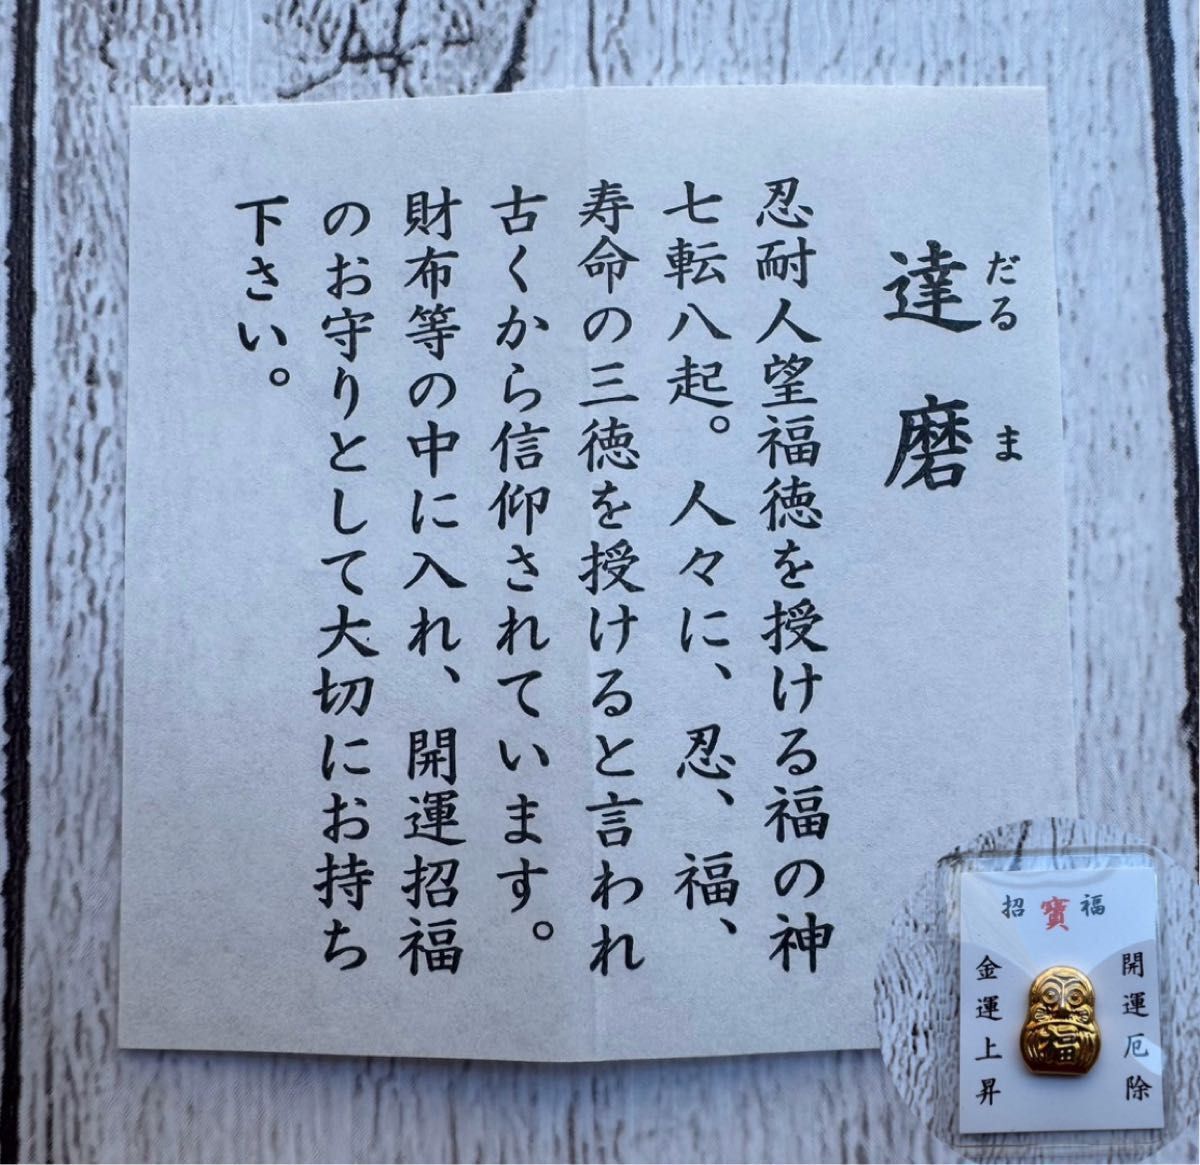 だるま
達磨
忍耐人望福徳を授ける福の神
七転八起。人々に、忍、福、
寿命の三徳を授けると言われ
古くから信仰されています。
財布等の中に入れ、開運招福
のお守りとして大切にお持ち
下さい。
招寶福
開運厄除
金運上昇
福